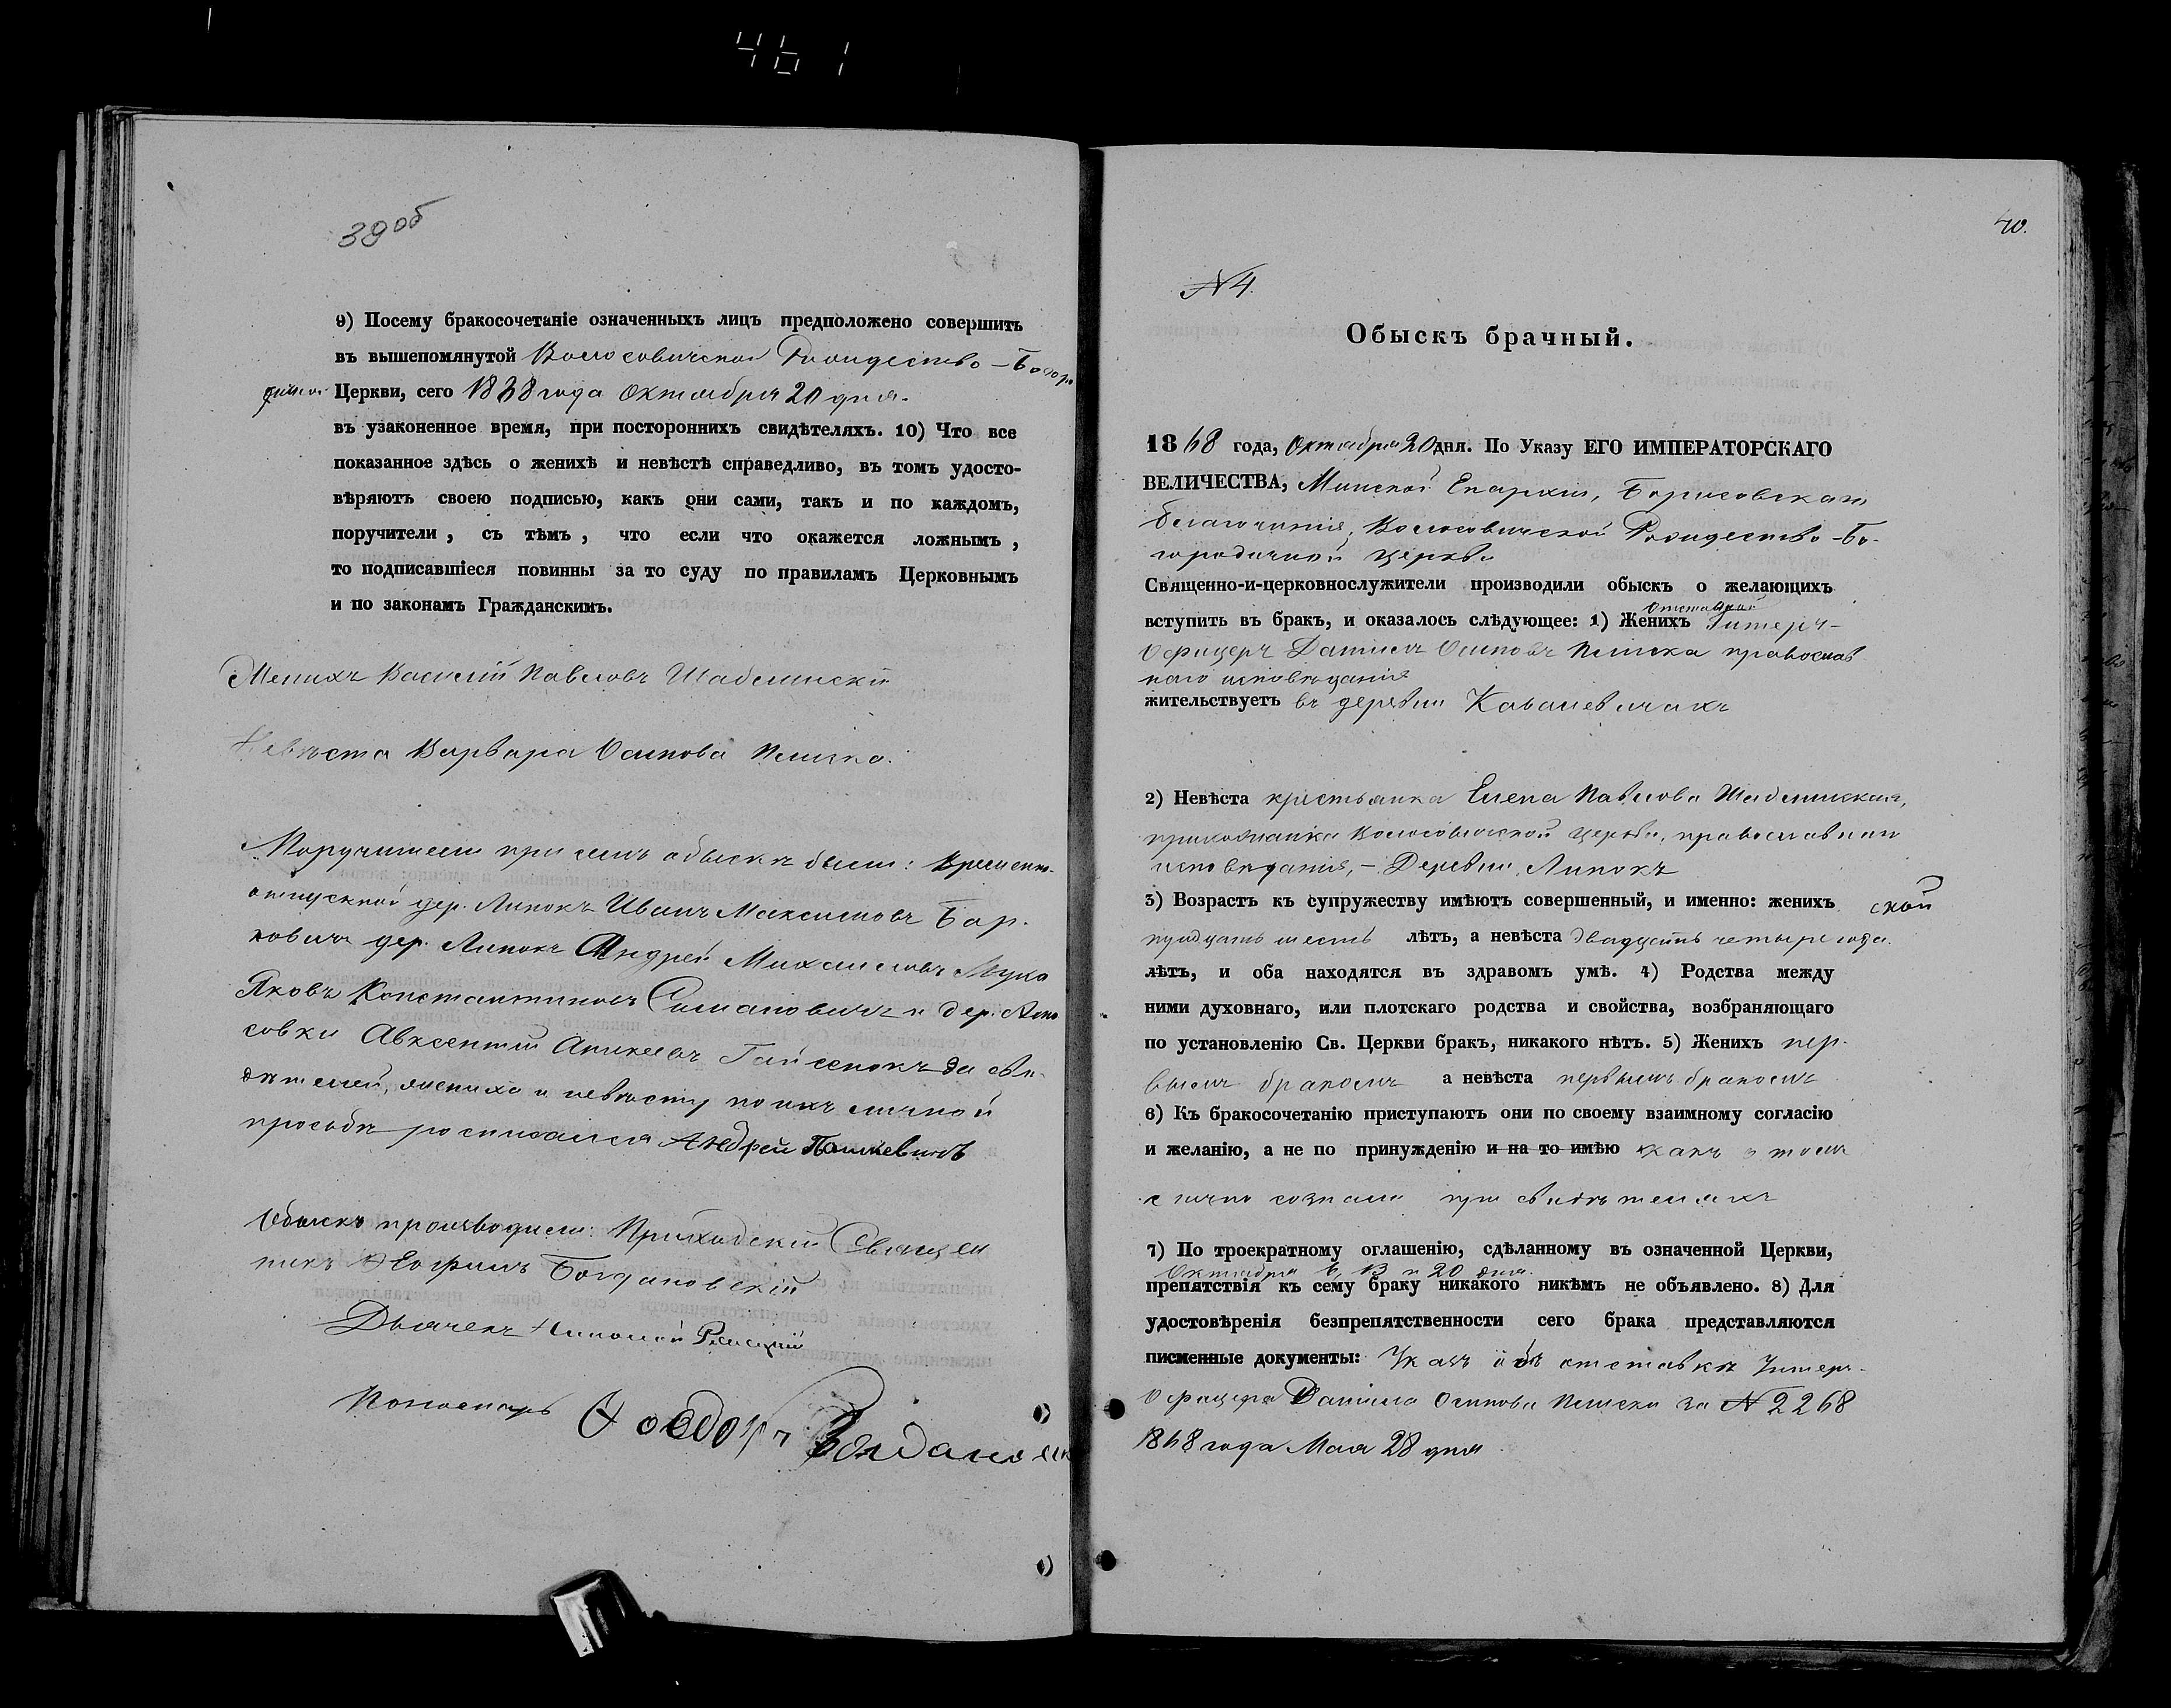 461
39 об
9) Посему бракосочетаніе означенныхъ лицъ предположено совершить
въ вышепомянутой Волосовичской Рождество-Богоро
дичной Церкви, сего 1868 года Октября 20 дня.
въ узаконенное время, при постороннихъ свидѣтеляхъ. 10) Что все
показанное здѣсь о женихѣ и невѣстѣ справедливо, въ томъ удосто-
вѣряютъ своею подписью, какъ они сами, такъ и по каждомъ,
поручители, съ тѣмъ, что если что окажется ложнымъ,
то подписавшіеся повинны за то суду по правиламъ Церковнымъ
и по законамъ Гражданскимъ.
Женихъ Василій Павловъ Шаблинскій
Невѣста Варвара Осипова
Поручители при семъ обыскѣ были: Временно-
отпускной дер. Липокъ Иванъ Максимовъ Бар-
ковичъ дер. Липокъ Андрей Михайловъ Муха
Яковъ Константиновъ Симановичъ и дер.
совки Авксентій Аникеевъ Гайсенокъ за сви-
дѣтелей, жениха и невѣсту по ихъ личной
просьбѣ росписался Андрей
Обыскъ производили: Приходскій Священ
никъ Богдановскій
Дьячекъ Николай
Пономарь Ѳеодоръ
40.
№ 4.
Обыскъ брачный.
1868 года, Октября 20 дня. По Указу ЕГО ИМПЕРАТОРСКАГО
ВЕЛИЧЕСТВА, Минской Епархіи, Борисовскаго
благочинія, Волосовичской Рождество-Бо-
городичной церкви
Священно-и-церковнослужители производили обыскъ о желающихъ
отставной
вступить въ бракъ, и оказалось слѣдующее: 1) Женихъ Унтеръ-
Офицеръ Данилъ Осиповъ православ
наго исповѣданія
жительствуетъ въ деревни
2) Невѣста крестьянка Елена Павлова Шаблинская,
прихожанка Волосовичской церкви, православнаго
исповѣданія, – Деревни Липокъ
3) Возрастъ къ супружеству имѣютъ совершенный, и именно: женихъ ской
тридцать шесть лѣтъ, а невѣста двадцать четыре года.
лѣтъ, и оба находятся въ здравомъ умѣ. 4) Родства между
ними духовнаго, или плотскаго родства и свойства, возбраняющаго
по установленію Св. Церкви бракъ, никакого нѣтъ. 5) Женихъ пер-
вымъ бракомъ а невѣста первымъ бракомъ
6) Къ бракосочетанію приступаютъ они по своему взаимному согласію
и желанію, а не по принужденію и на то имѣю какъ о томъ
лично сознали при свидѣтеляхъ
7) По троекратному оглашенію, сдѣланному въ означенной Церкви,
Октября 6, 13 и 20 дня.
препятствія къ сему браку никакого никѣмъ не объявлено. 8) Для
удостовѣренія безпрепятственности сего брака представляются
писменные документы: Указъ объ отставкѣ Унтеръ-
Офицера Данила Осипова за № 2268
1868 года Мая 28 дня